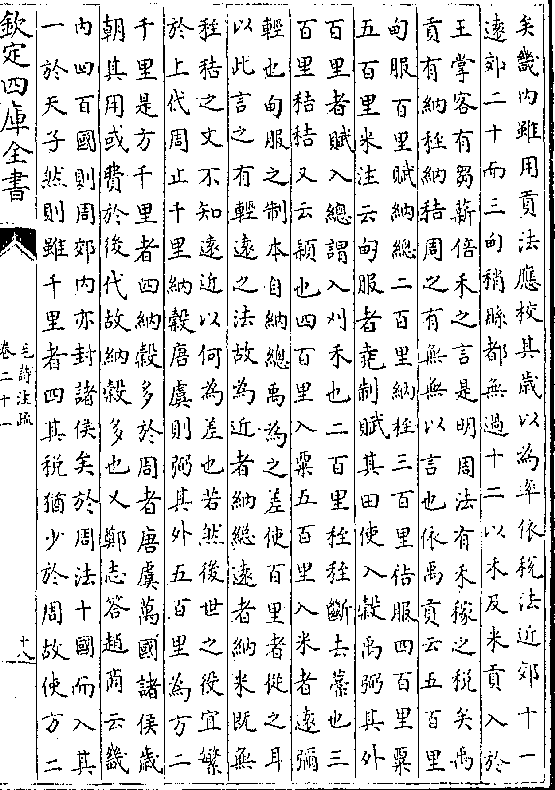 矣畿内雖用貢法應校其歲以為率依税法近郊十一
逺郊二十而三甸稍縣都無過十二以禾及米貢入於
王掌客有芻薪倍禾之言是明周法有禾稼之税矣禹
貢有納秷納秸周之有無無以言也依禹貢云五百里
甸服百里賦納總二百里納秷三百里秸服四百里粟
五百里米注云甸服者堯制賦其田使入穀禹弼其外
百里者賦入總謂入刈禾也二百里秷秷斷去藁也三
百里秸秸又云穎也四百里入粟五百里入米者逺彌
輕也甸服之制本自納總禹為之差使百里者從之耳
以此言之有輕逺之法故為近者納總逺者納米既無
秷秸之文不知逺近以何為差也若然後世之役宜繁
於上代周止千里納穀唐虞則弼其外五百里為方二
千里是方千里者四納穀多於周者唐虞萬國諸侯歲
朝其用或費於後代故納穀多也又鄭志答趙商云畿
内四百國則周郊内亦封諸侯矣於周法十國而入其
一於天子然則雖千里者四其税猶少於周故使方二
欽定四庫全書
毛詩注疏
卷二十一
十八